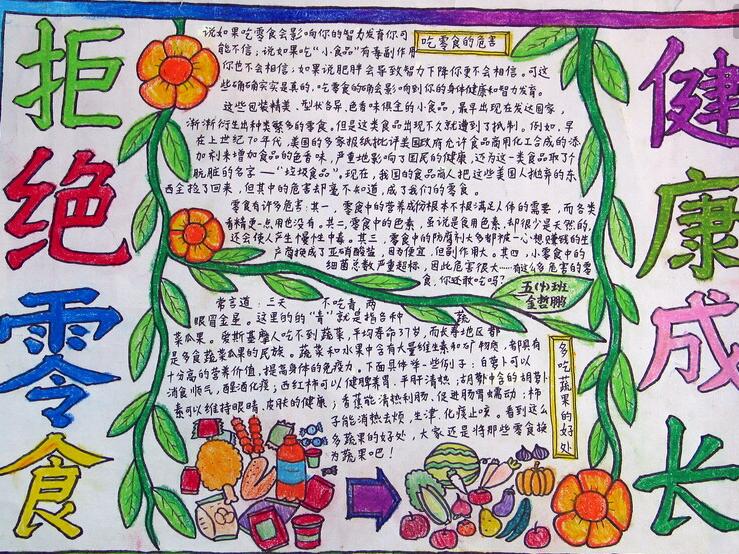 拒绝零食
健康成长
吃零食的危害
说如果吃零食会影响你的智力发育你可
能不信；说如果吃“小食品”有毒副作用
你也不会相信；如果说肥胖会导致智力下降你更不会相信。可这
些确确实实是真的，吃零食的确会影响到你的身体健康和智力发育。
这些包装精美、型状各异、色香味俱全的小食品，最早出现在发达国家，
渐渐衍生出种类繁多的零食。但是这类食品出现不久就遭到了抵制。例如，早
在上世纪70年代，美国的多家报纸批评美国政府允许食品商用化工合成的添
加剂来增加食品的色香味，严重地影响了国民的健康，还为这一类食品取了个
肮脏的名字——“垃圾食品”。现在，我国的食品商人把这些美国人抛弃的东
西全捡了回来，但其中的危害却毫不知道，成了我们的零食。
零食有许多危害：其一，零食中的营养成份根本不根满足人体的需要，而各类
香精更一点用也没有。其二，零食中的色素，虽说是食用色素，却很少是天然的，
还会使人产生慢性中毒。其三，零食中的防腐剂大多都被一心想赚钱的生
产商换成了亚硝酸盐，因为便宜，但副作用大。其四，小零食中的
细菌总数严重超标，因此危害很大……有这么多危害的零
食，你还敢吃吗？
五(1)班
金哲鹏
多吃蔬果的好处
常言道：三天 不吃青，两
眼冒金星。这里的的“青”就是指各种 蔬
菜瓜果。爱斯基摩人吃不到蔬菜，平均寿命37岁，而长寿地区都
是多食蔬菜瓜果的民族。蔬菜和水果中含有大量维生素和矿物质，都具有
十分高的营养价值，提高身体的免疫力。下面具体举一些例子：白萝卜可以
消食顺气，醒酒化痰；西红柿可以健脾养胃，平肝清热；胡萝卜中含的胡萝卜
素可以维持眼睛、皮肤的健康；香蕉能清热利肠、促进肠胃蠕动；柿
子能消热去烦，生津，化痰止咳。看到这么
多蔬果的好处，大家还是将那些零食换
为蔬果吧！